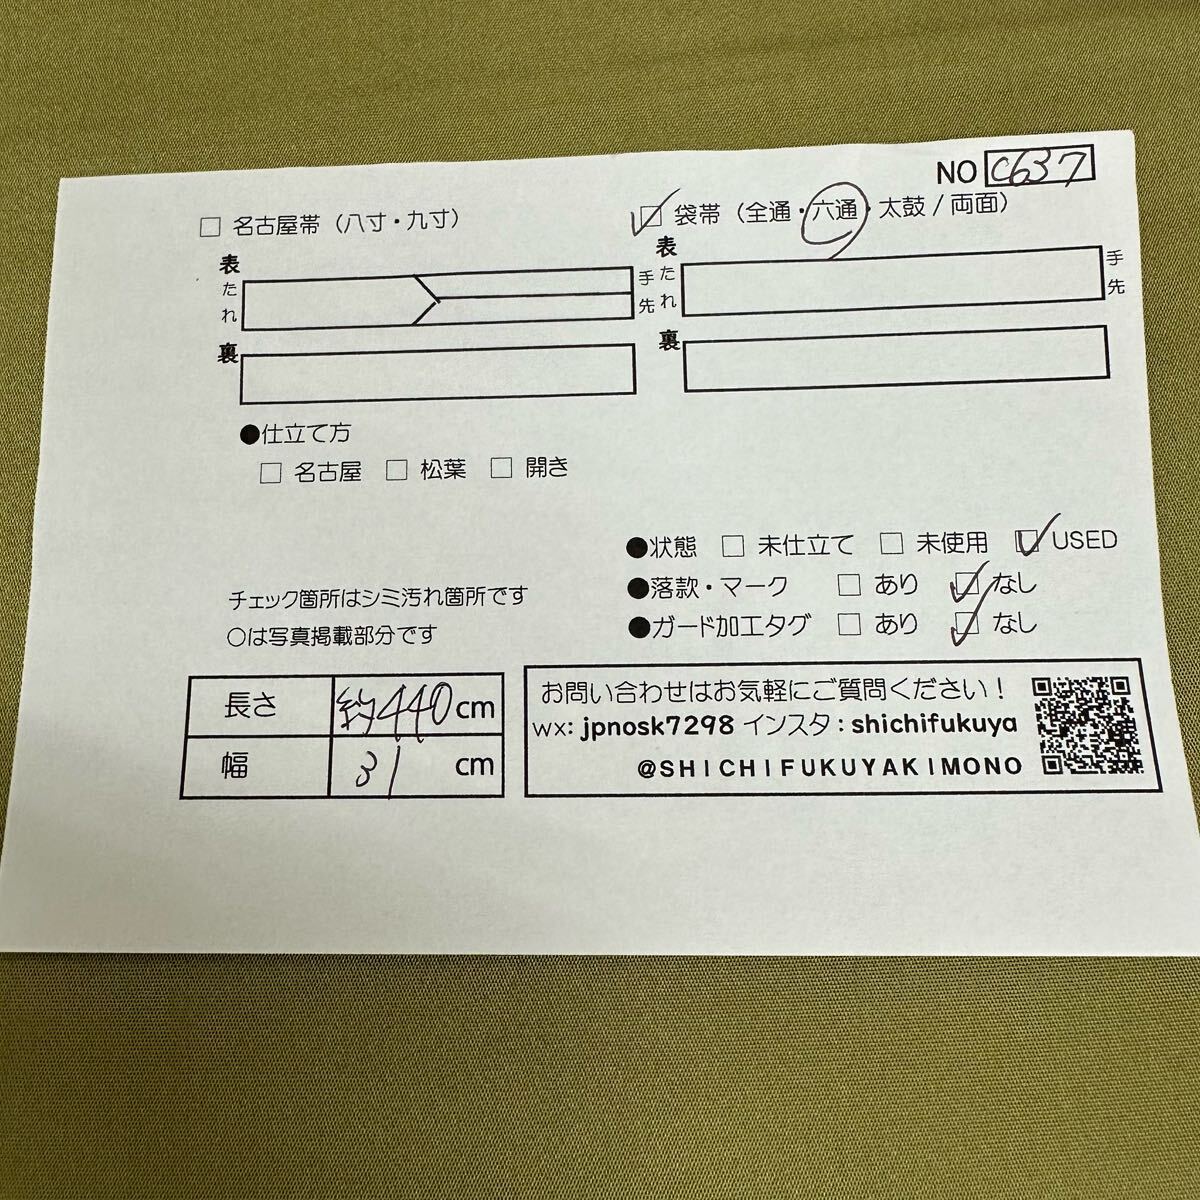 NO C637
□ 名古屋帯（八寸・九寸）
☑ 袋帯（全通・六通・太鼓/両面）
表
たれ
手先
裏
表
たれ
手先
裏
●仕立て方
□ 名古屋 □ 松葉 □ 開き
●状態 □ 未仕立て □ 未使用 ☑ USED
●落款・マーク □ あり ☑ なし
●ガード加工タグ □ あり ☑ なし
チェック箇所はシミ汚れ箇所です
○は写真掲載部分です
長さ 約440cm
幅 31 cm
お問い合わせはお気軽にご質問ください！
wx: jpnosk7298 インスタ：shichifukuya
@SHICHIFUKUYAKIMONO